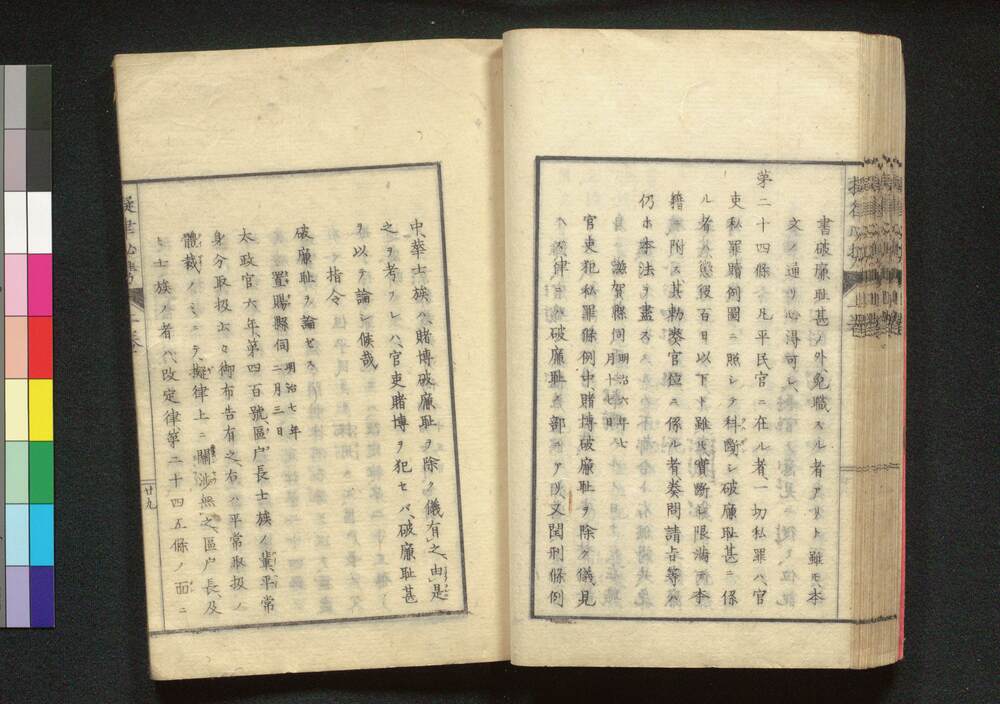 書破廉耻甚ノ外、免職スル者アリト雖モ、本
文ノ通リ心得可シ、
第二十四條 凡平民官ニ在ル者、一切私罪ハ、官
吏私罪贖例圖ニ照シテ科斷シ、破廉耻甚ニ係
ル者ハ、懲役百日以下ト雖モ、實斷シ、限滿テ本
籍ニ附ス、其勅奏官位ニ係ル者、奏問請㫖等ハ、
仍ホ本法ヲ盡ス、
滋賀縣伺 明治六年七月十七日
官吏犯私罪條例中、賭博破廉耻ヲ除ク儀、見
ヘ、律ニ破廉耻ノ部ニアリ、又閏刑條例
中、華士族ハ、賭博破廉耻ヲ除ク儀有之、由是
之ヲ考フレハ、官吏賭博ヲ犯セハ、破廉耻甚
ヲ以テ論シ候哉
指令
破廉耻ヲ論セス
置賜縣伺 明治七年二月三日
太政官六年、第四百號、區戸長士族ノ輩、平常
身分取扱ニ御布告有之、右ハ平常取扱ノ
體裁ノミニテ、擬律上ニ關渉無之、區戸長、及
士族ノ者ハ、改定律第二十四五條ノ面ニ
廿九